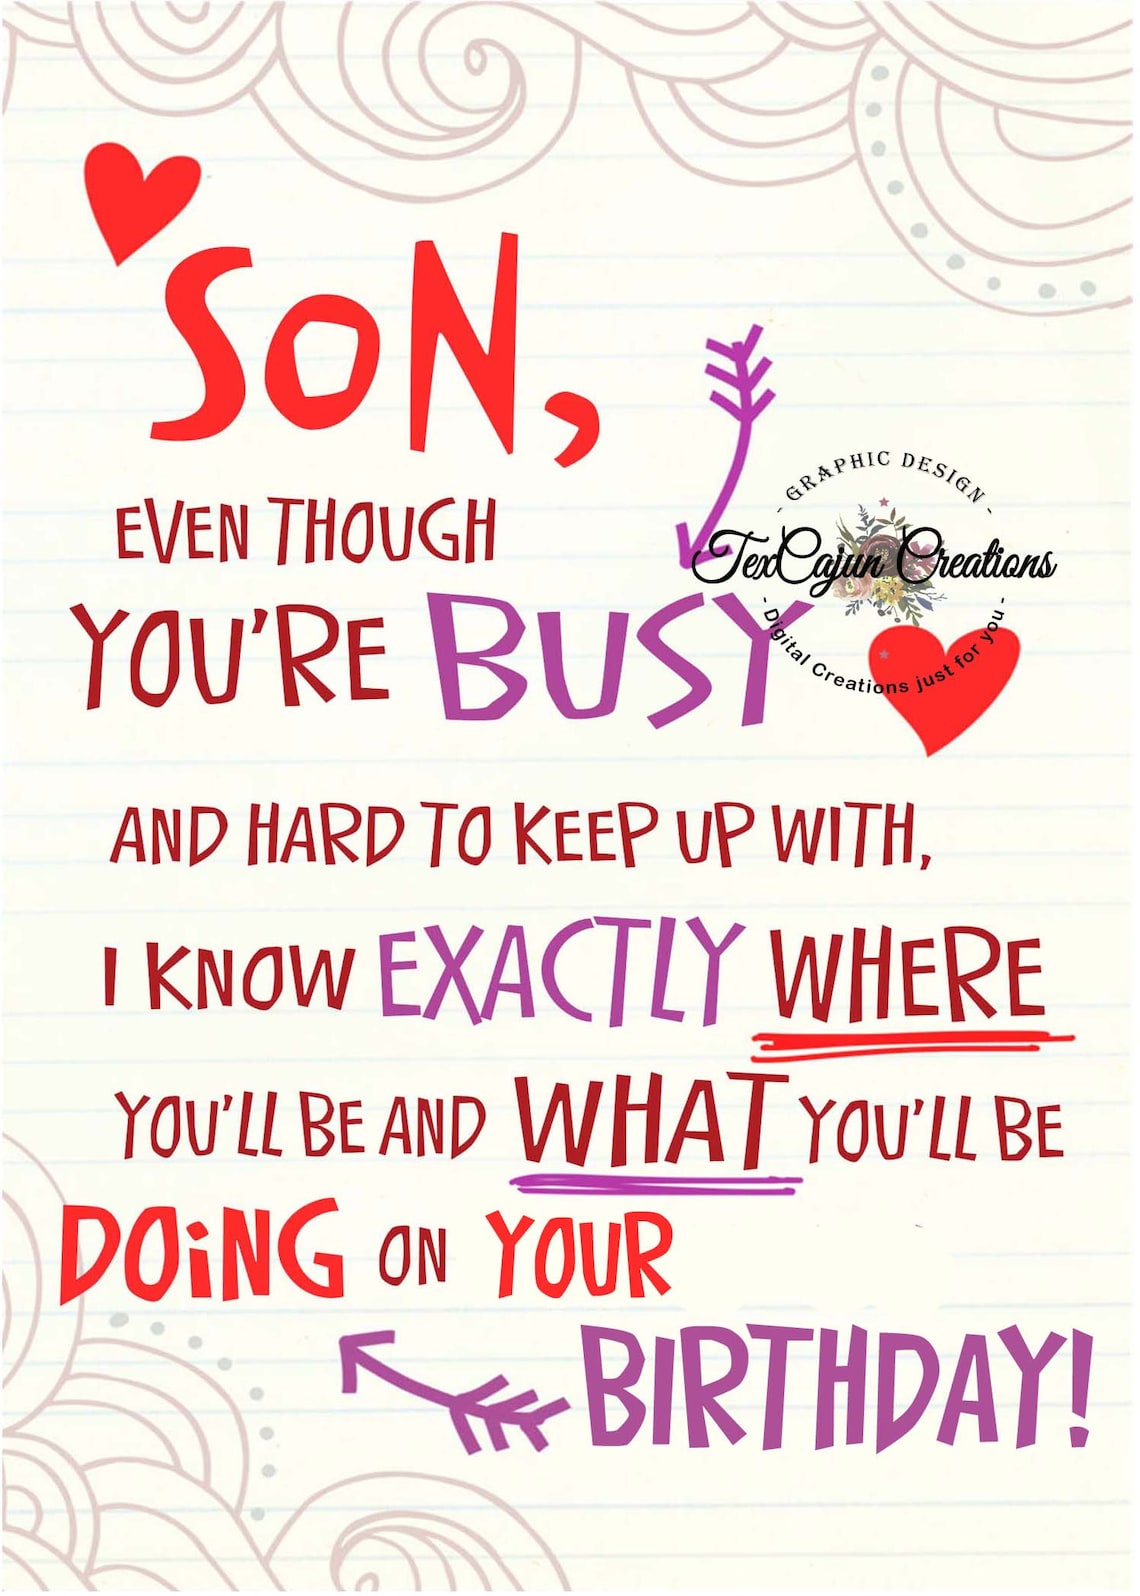 SON,
EVEN THOUGH
YOU'RE BUSY
- GRAPHIC DESIGN -
TexCajun Creations
- Digital Creations just for you -
AND HARD TO KEEP UP WITH,
I KNOW EXACTLY WHERE
YOU'LL BE AND WHAT YOU'LL BE
DOiNG ON YOUR
BIRTHDAY!